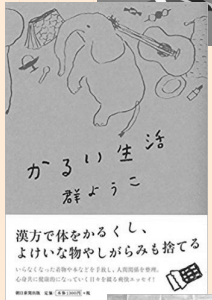 かるい生活
群ようこ
漢方で体をかるくし、
よけいな物やしがらみも捨てる
いらなくなった着物や本などを手放し、人間関係を整理。
心身共に健康的になっていく日々を綴る爽快エッセイ!
朝日新聞出版